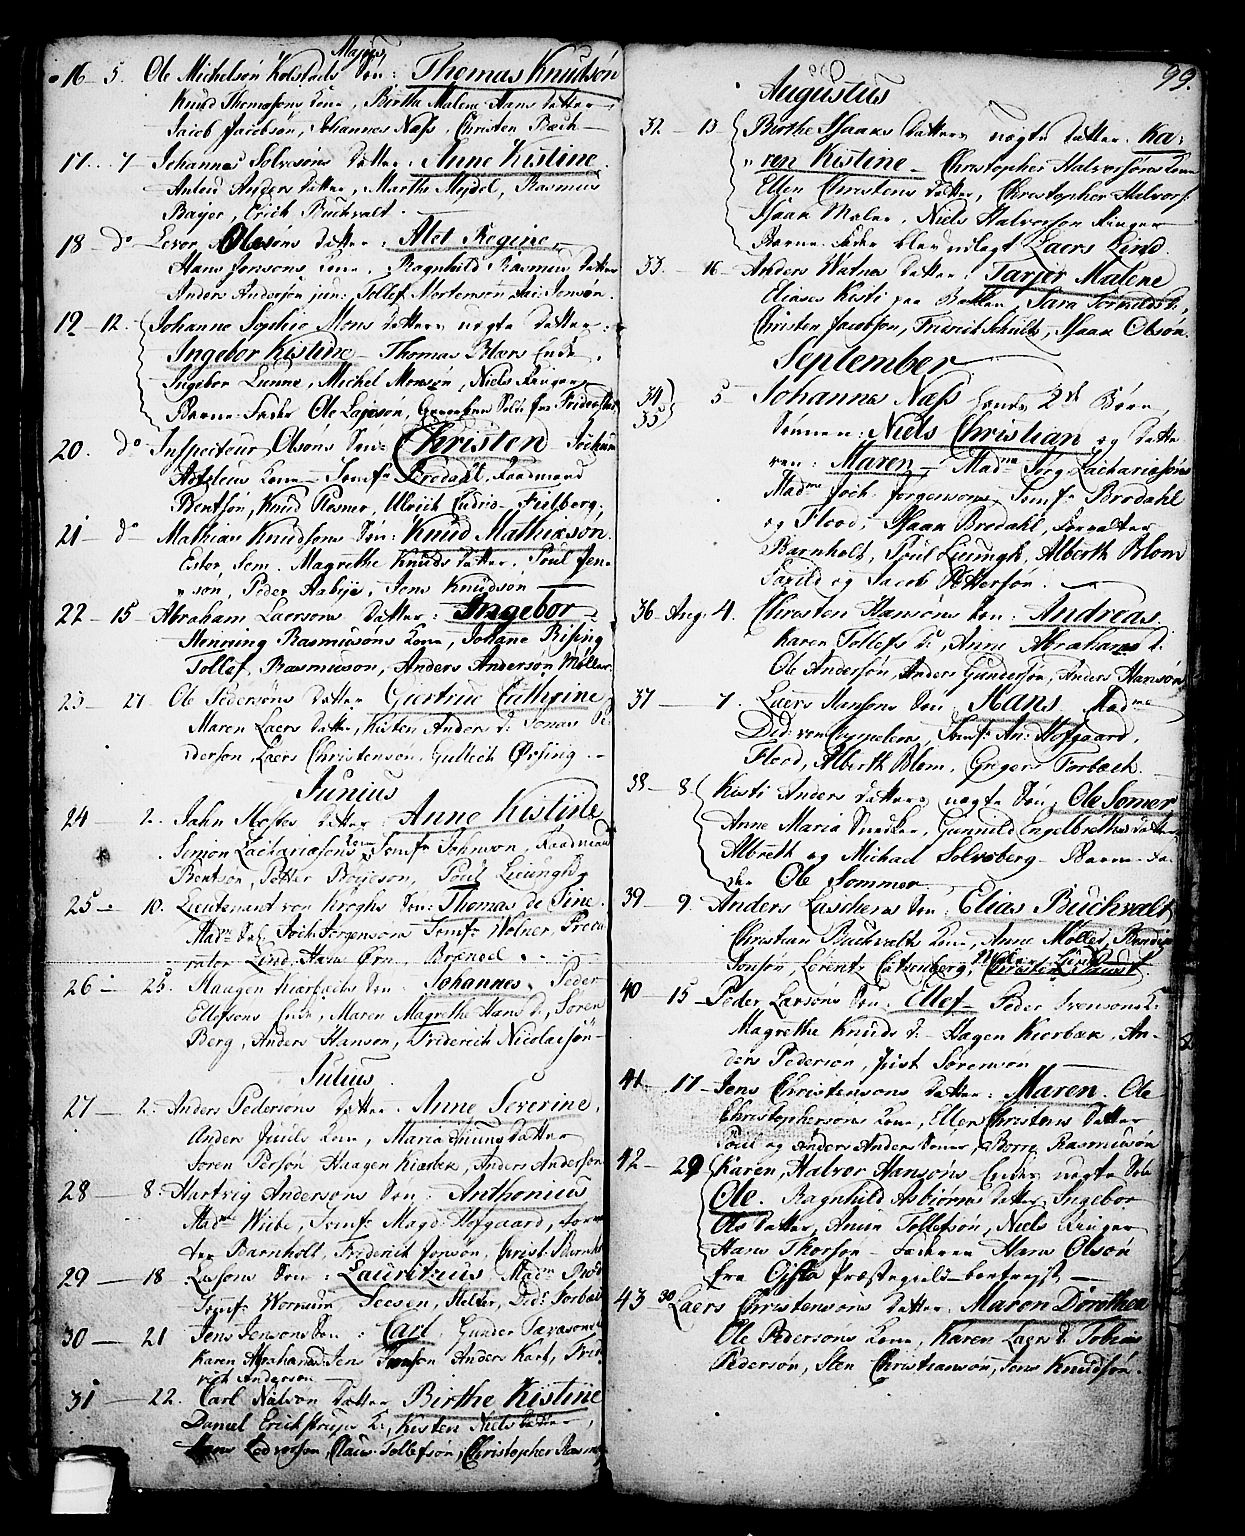 Majus
16 5. Ole Michelsøn Kolstads Søn: Thomas Knudsøn
Knud Thomæsøns Kone, Birthe Malene Hans datter
Jacob Jacobsøn, Johannes Næss, Christen Bach
17. 7 Johannes Solvesøns Datter: Anne Kistine
Anders datter, Marthe Mejdel, Rasmus
Bayer, Erich Buchvalt.
18 do Levor Olesøns datter: Alet Regine
Hans Jensøns Kone, Ragnhild Rasmus datter
Anders Andersøn jun: Tollef Mortensøn Jensøn.
19 12. Johanne Sophie Mons datters uægte datter:
Ingebor Kistine Thomas Blærs Enke,
Ingebor Lunne, Michel Monsøn, Niels Ringer
Barne-Fader Ole Lassøn, Soldt fra Friderichst
20. do Inspecteur Olsøns Søn: Christen Jochum
Kone Jomfr Bredahl, Raadmand
Bentsøn, Knud Plesner, Ulrich Fulberg,
21 do Mathias Knudsøns Søn: Knud Mathiæson.
Ester Sem. Magrethe Knuds datter, Poul Jen=
søn, Peder Aabye, Jens Knudsøn
22 15 Abraham Laersøns datter: Ingebor
Henning Rasmusøns Kone, Johane Rising
Tollef Rasmuson, Anders Andersøn Møller
23 27 Ole Pedersøns datter Giertrue Cathrine
Maren Laers datter, Kisten Anders d: Jonas Pe=
dersøn, Laers Christensøn, Gullech Øvsing
Junius
24 2. Jahn Mostes datter: Anne Kistine
Simon Zachariasøns Kone, Jomfr Johnson, Raadmand
Bentsøn, Petter Boyesøn, Poul Lieungh
25 10. Lieutenant von Kroghs Søn: Thomas de Fine
Madm Jørgensøns Jomfr Wolner, Procu
rator Lind, Hans Ørn, Brønel
26 25. Haagen Kiærbechs Søn: Johannes. Peder
Ellefsøns Enke, Maren Magrethe Hans d, Søren
Berg, Anders Hansøn, Friderich Nicolaisøn
Julius.
27 2: Anders Pedersøns datter: Anne Severine,
Anders Juuls Kone, Maria Juuns datter
Søren Persøn Haagen Kiærbek, Anders Andersøn
28 8: Hartvig Andersøns Søn: Anthonius
Madm Wiibe, Jomfr Magd: Hofgaard, Forva
ter Barnholt, Friderich Jonsøn, Christ: Barnh
29 18 Lassøns Søn: Lauritzius, Madm
Jomfr Wornum, Jessen, Melter, Did: Forbæch
30 21 Jens Jensøns Søn: Carl, Gunder Taraldsøns
Karen Abrahams d, Jens Jensøn Anders Karl, Frid
rich Andersøn
31 22. Carl Nielsøn datter Birthe Kistine
Daniel Erichstrups K:, Kisten Niels datter,
Hans Ledvorsøn, Claus Tollefsøn, Christopher Rasm
99.
Augustus
32 13 Birthe Isaaks datters uægte datter. Ka=
ren Kistine Christopher Halvorsøns Kone
Ellen Christens datter, Christopher Halvors:
Isaak Maler, Niels Halvorsøn Ringer
Barne-Fader blev udlagt Laers Lind.
33. 16. Anders Watnes datter: Tarjer Malene
Eliases Kisti paa Bakken, Sara Torkilds d:,
Christen Jacobsøn, Friderich Schults, Isaak Olsøn.
September
34 35 5 Johannes Næss hends 2de Børn,
Sønnen: Niels Christian og datte
ren: Maren, Madm Jørg Zachariasøns
Madm Joch: Jørgensøns Jomfr Bredahl
og Flood, Isaak Bredahl, Forvalter
Barnholt, Poul Lieungh, Alberth Blom
Farild og Jacob Pettersøn.
36 Aug: 4. Christen Hansøns Søn: Andreas.
Karen Tollefs d:, Anne Abrahams d:
Ole Andersøn, Anders Gundersøn, Anders Hansøn
37 7. Laers Hansøns Søn Hans Madme
Did: von Cappelens, Jomfr: An: Hofgaard,
Flood, Alberth Blom, Gregers Forbæch.
38 8 Kisti Anders datters uægte Søn: Ole Somer
Anne Maria Snedker, Gunnild Engelbreths datter
Albreth og Michael Solvsberg Barne-Fa
der Ole Sommer
39 9. Anders Laschens Søn: Elias Buchvalt
Christian Buchvalts Kone, Anne Møller,
Jonsøn, Lorentz Catsenberg, Peder Lind
40 15 Peder Larsøns Søn: Ellef Peder Svensøns K:
Magrethe Knuds d: Hagen Kierbæk, An=
ders Pedersøn, Just Sørensøn
41 17 Jens Christensøns datter: Maren. Ole
Christophersøns Kone, Ellen Christens datter
Poul og Anders Anders Sønner, Borre Rasmusøn
42 29 Karen, Halvor Hansøns Enkes uægte Søn
Ole. Ragnhild Asbiørns datter, Ingebor
Ols datter, Amun Tollefsøn, Niels Ringer
Hans Thorsøn Faderen Hans Olsøn
fra Præstegield
43 30 Laers Christensøns datter: Maren Dorothea
Ole Pedersøns Kone, Karen Laers d. Tobias
Pedersøn, Sten Christiansøn, Jens Knudsøn.